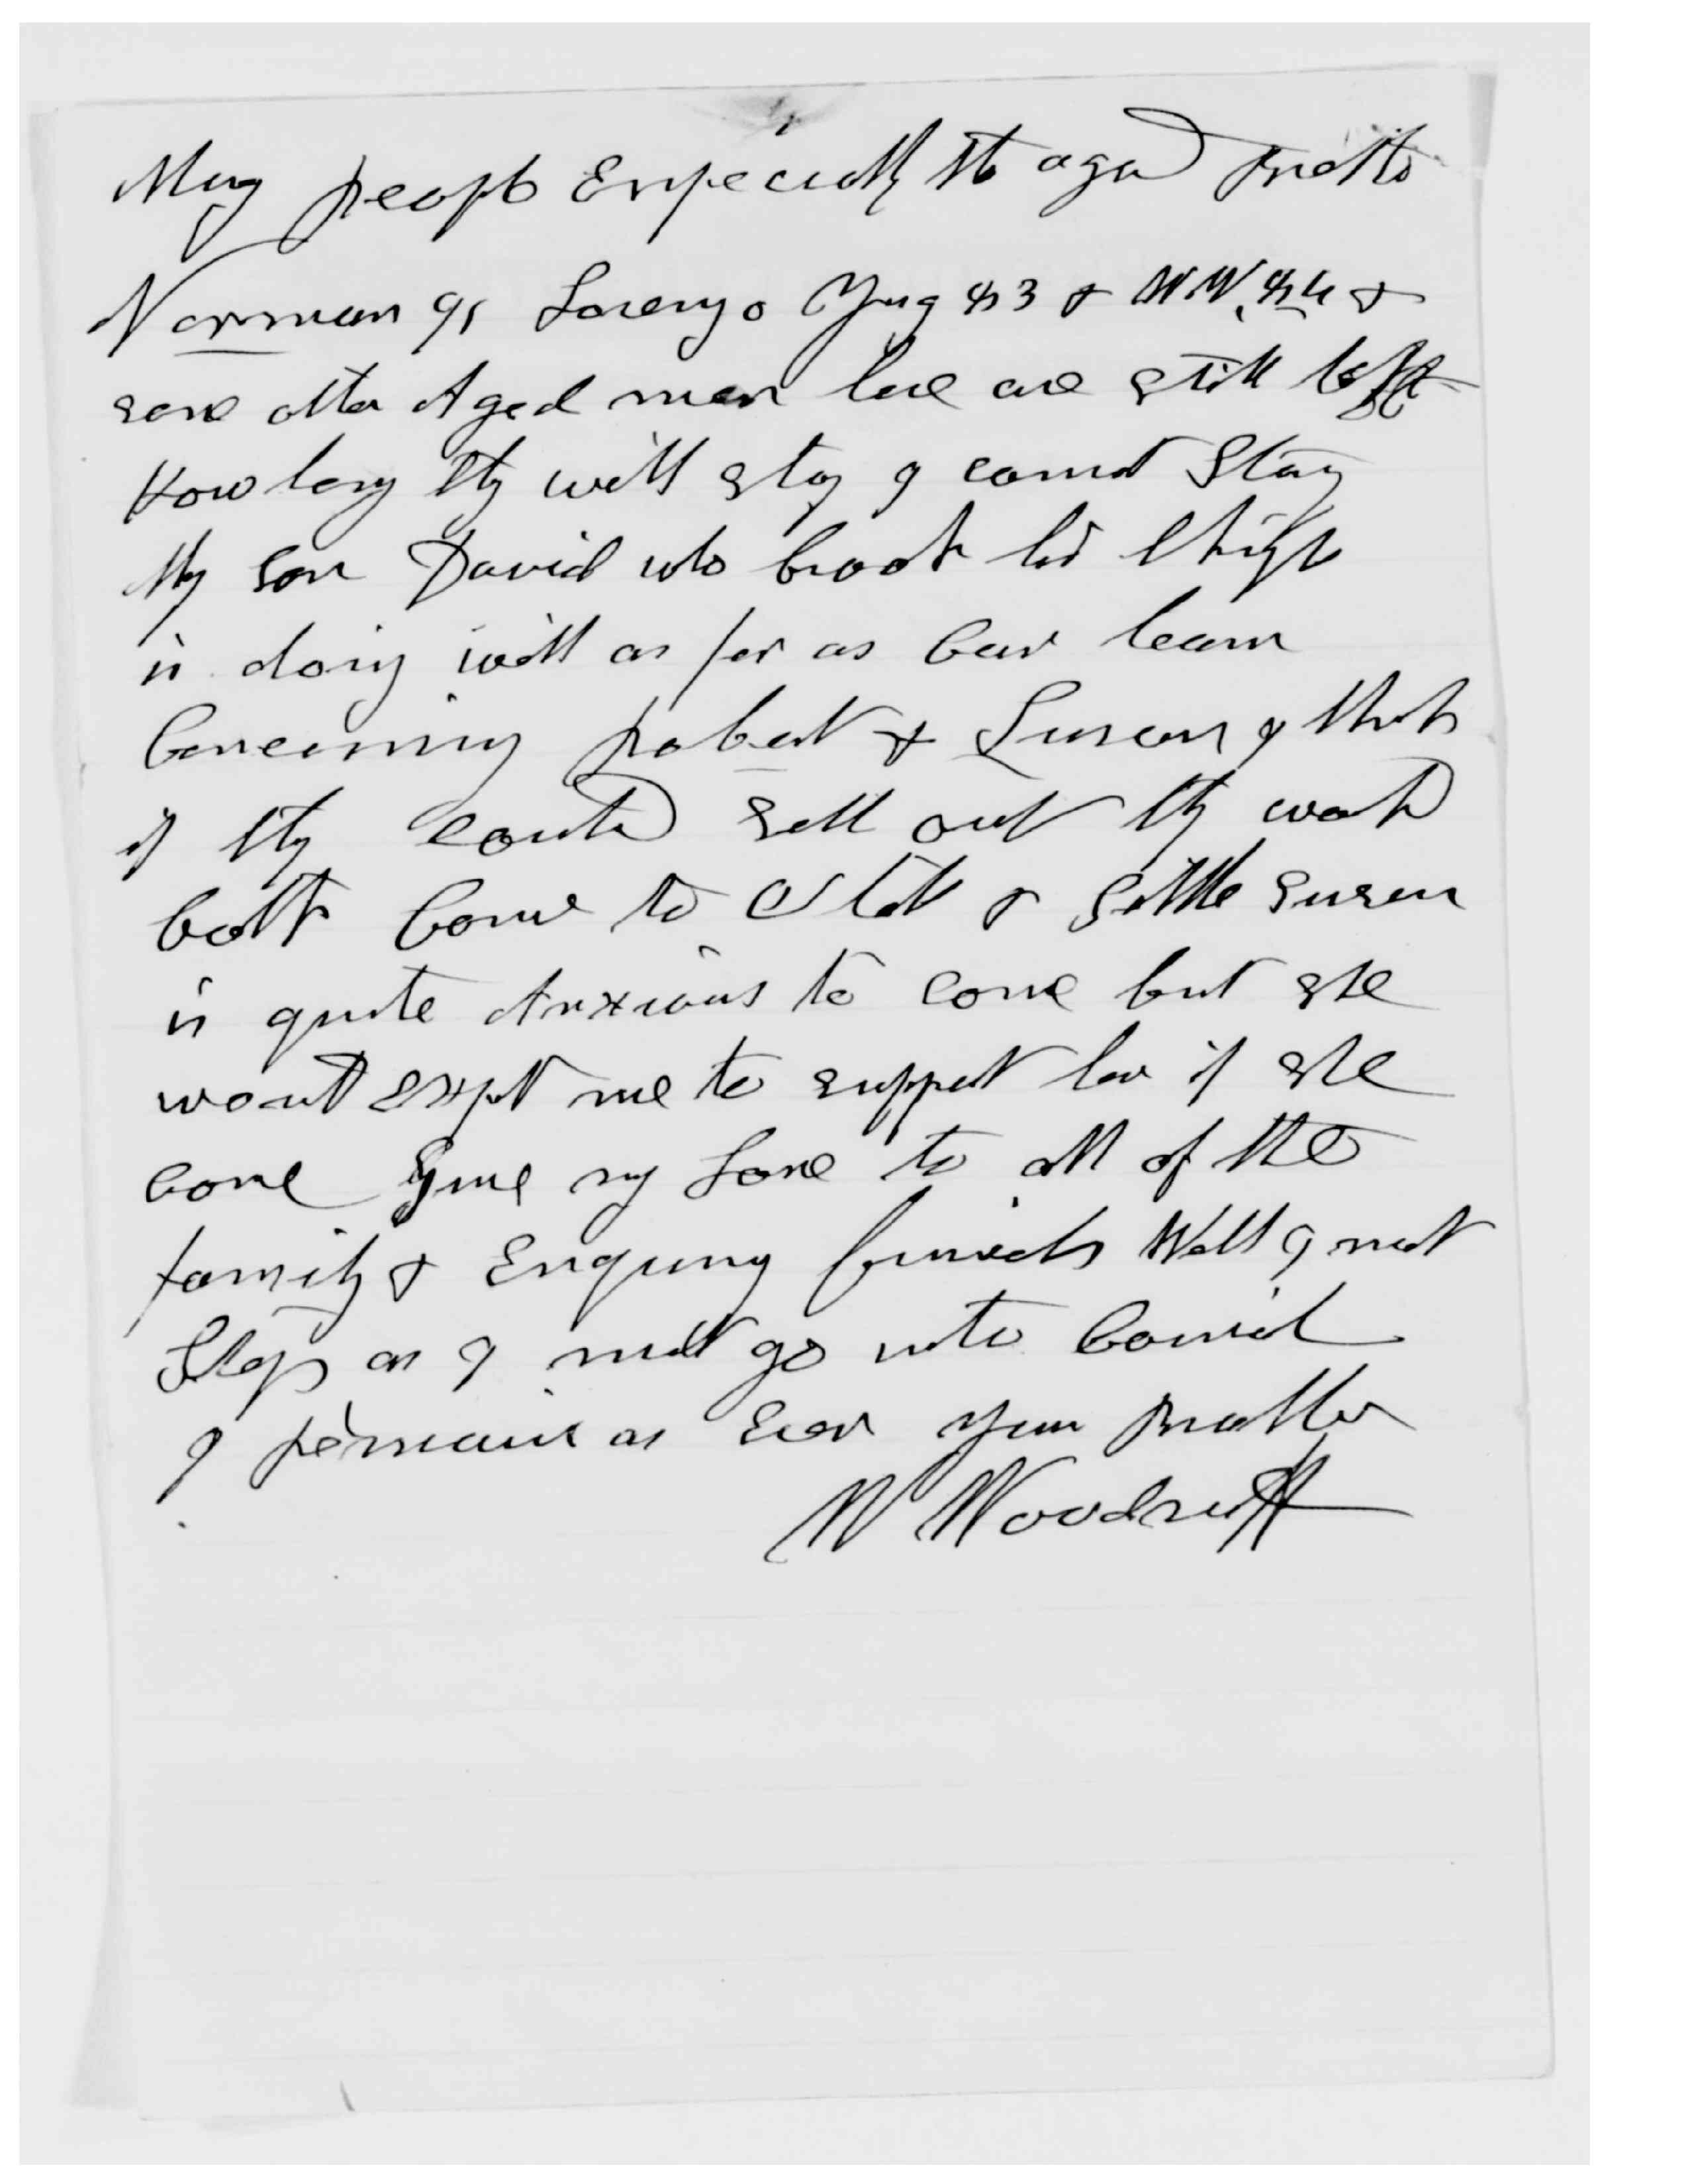 Many people Especially the aged Brother
Norman 91 Lorenzo Yung 83 & W.W. 84 &
some other Aged men here are still left
How long they will stay I cannot stay
My son David who brook his thigh
is doing well as far as Can learn
Concerning Robert & Susan I think
if they could sell out they would
both Come to Utah & settle Susan
is quite Anxious to come but she
would expet me to support her if she
come Give my Love to all of the
family & Enquiring friends Well I must
Stop as I must go into Council
I Remain as Ever your Brother
W Woodruff